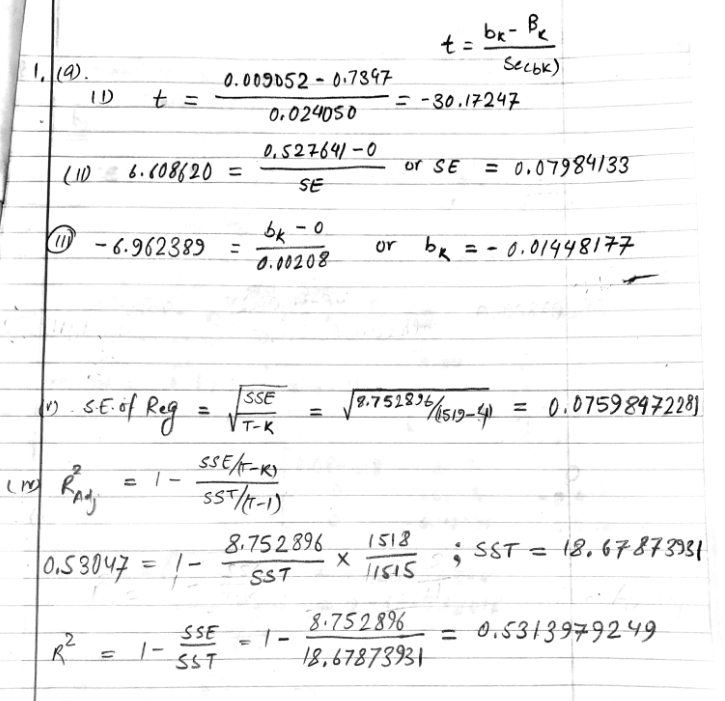 t = (bk - Bk) / Se(bk)
1. (a).
(i) t = (0.009052 - 0.7397) / 0.024050 = -30.17247
(ii) 6.608620 = (0.527641 - 0) / SE or SE = 0.07984133
(iii) -6.962389 = (bk - 0) / 0.00208 or bk = -0.01448177
(v). S.E. of Reg = √(SSE / T-K) = √(8.752896/(1519-4)) = 0.07598972281
(iv) R²Adj = 1 - (SSE/(T-K)) / (SST/(T-1))
0.53047 = 1 - 8.752896 / SST × 1518 / 1515 ; SST = 18.67873931
R² = 1 - SSE / SST = 1 - 8.752896 / 18.67873931 = 0.5313979249